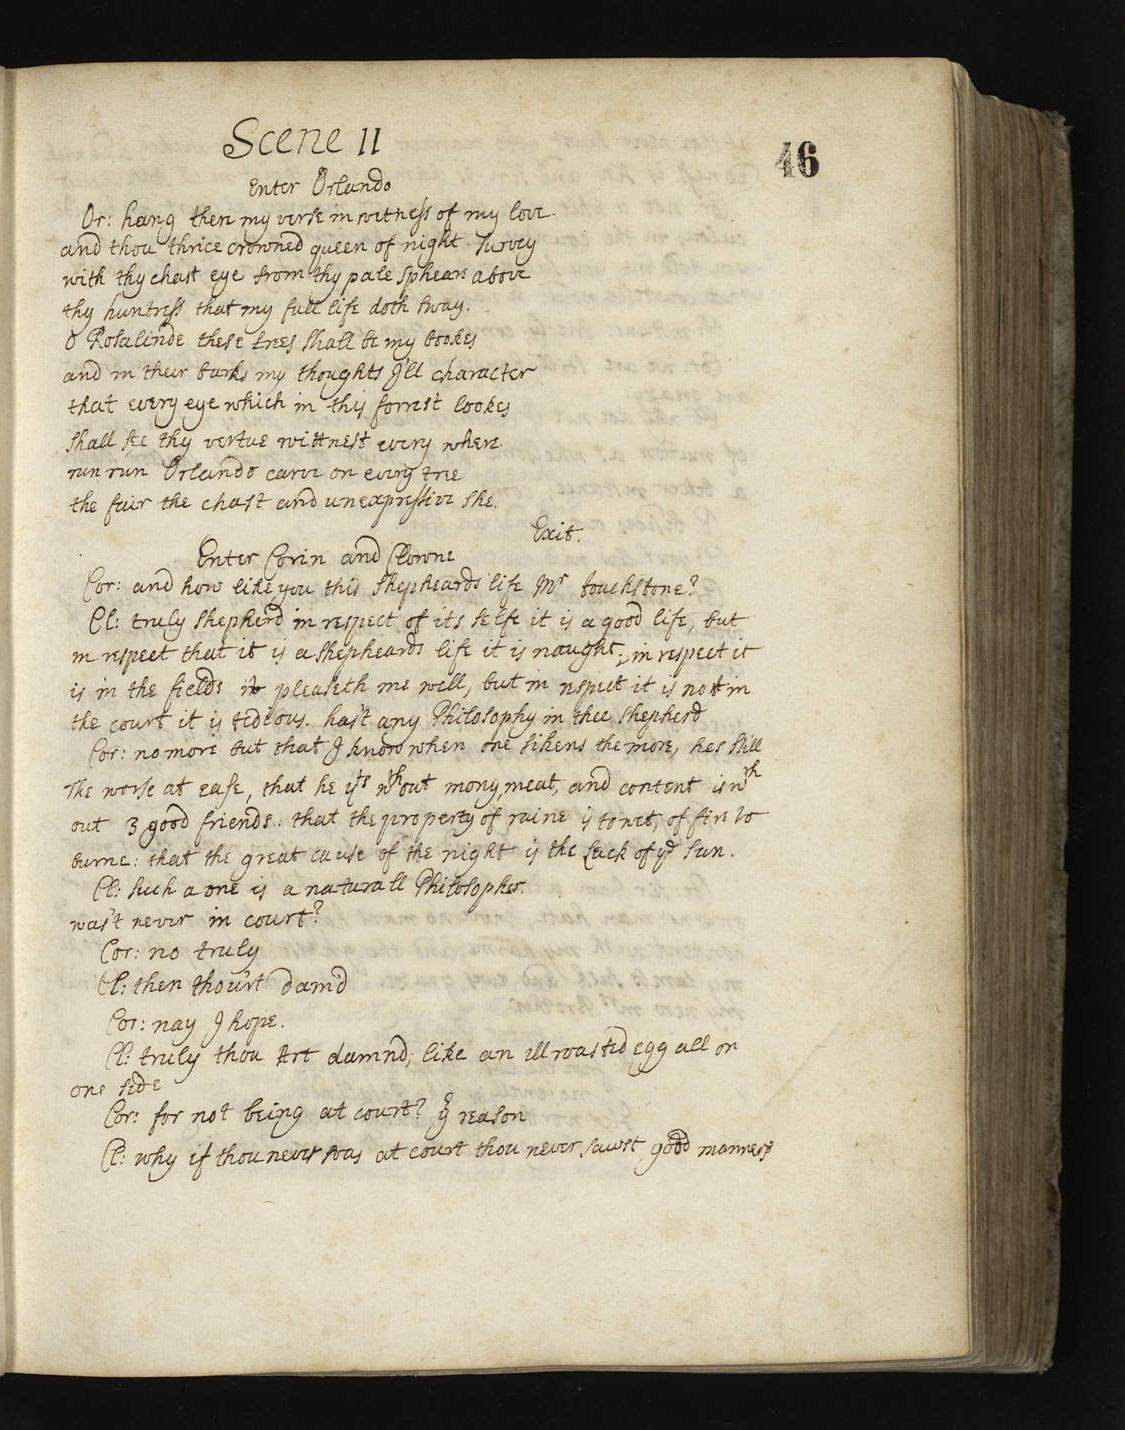 Scene II
46
Enter Orlando
Or: hang ther my verse in witness of my love.
and thou thrice crowned queen of night survey
with thy chast eye from thy pale sphear above
thy huntress that my full life doth sway.
O Rosalinde these trees shall be my bookes
and in their barks my thoughts I'll character
that every eye which in this forrest lookes
shall see thy vertue wittnest every where
run run Orlando carve on every tree
the fair the chast and unexpressive she.
Exit.
Enter Corin and Clowne
Cor: and how like you this shepheards life Mr touchstone?
Cl: truly shepherd in respect of its selfe it is a good life, but
in respect that it is a shepheards life it is naught; in respect it
is in the fields it pleaseth me well, but in respect it is not in
the court it is tedious. hast any Philosophy in thee shepherd
Cor: no more but that I know when one sikens the more, hes still
the worse at ease, that he yts wthout mony, meat, and content is wth
out 3 good friends: that the property of raine is to wet, of fire to
burne: that the great cause of the night is the lack of ye sun.
Cl: such a one is a naturall Philosopher.
was't never in court?
Cor: no truly
Cl: then thou'rt dam'd
Cor: nay I hope.
Cl: truly thou art damnd, like an ill roasted egg all on
one side
Cor: for not being at court? yr reason
Cl: why if thou never was at court thou never sawst good manners